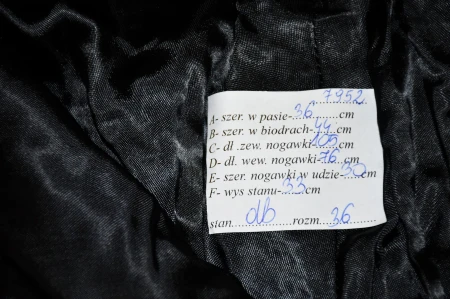 7952
A- szer. w pasie-36cm
B- szer. w biodrach-44cm
C- dł .zew. nogawki-105cm
D- dł. wew. nogawki-76cm
E- szer. nogawki w udzie-30cm
F- wys stanu-33cm
stan db rozm. 36